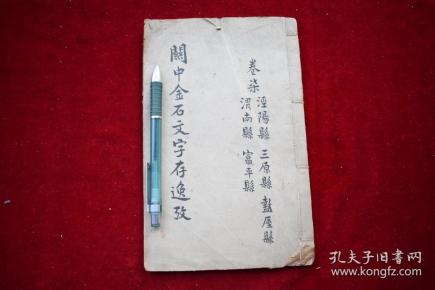 卷柒 涇陽縣 三原縣 盩厔縣
渭南縣 富平縣
關中金石文字存逸攷
孔夫子旧书网
www.kongfz.com